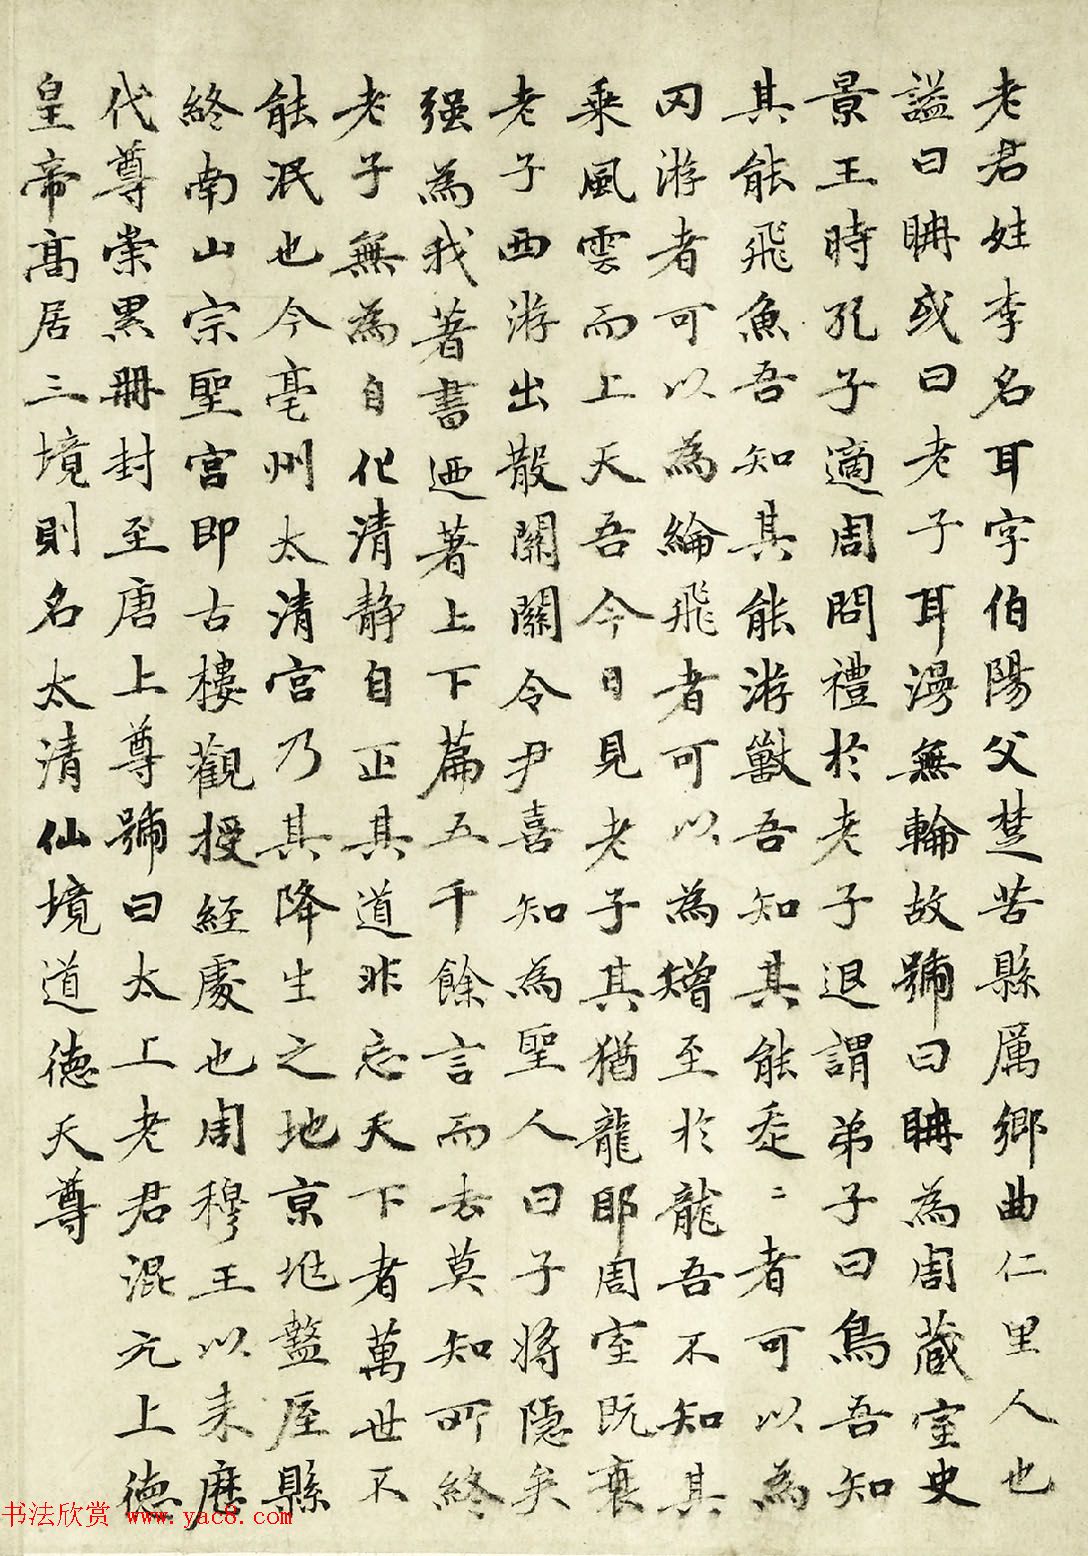 老君姓李名耳字伯陽父楚苦縣厲鄉曲仁里人也
謚曰聃或曰老子耳漫無輪故號曰聃為周藏室史
景王時孔子適周問禮於老子退謂弟子曰鳥吾知
其能飛魚吾知其能游獸吾知其能走二者可以為
罔游者可以為綸飛者可以為矰至於龍吾不知其
乘風雲而上天吾今日見老子其猶龍耶周室既衰
老子西游出散關關令尹喜知為聖人曰子將隱矣
强為我著書迺著上下篇五千餘言而去莫知所終
老子無為自化清静自正其道非忘天下者萬世不
能泯也今亳州太清宮乃其降生之地京兆盩厔縣
終南山宗聖宮即古樓觀授經處也周穆王以来歷
代尊崇累冊封至唐上尊號曰太上老君混元上德
皇帝高居三境則名太清仙境道德天尊
书法欣赏 www.yac8.com